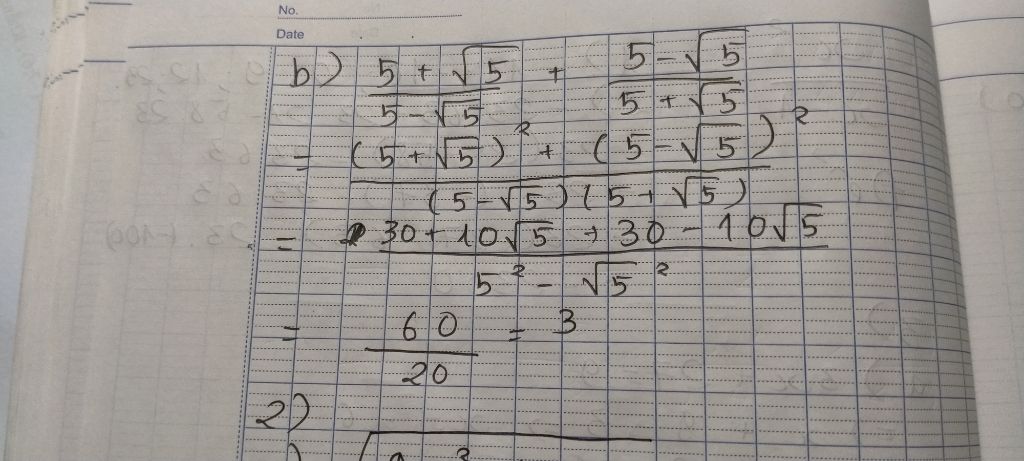 No.
Date
b) (5 + √5)/(5 - √5) + (5 - √5)/(5 + √5)
= ((5 + √5)² + (5 - √5)²)/((5 - √5)(5 + √5))
= (30 + 10√5 + 30 - 10√5)/(5² - √5²)
= 60/20 = 3
2)